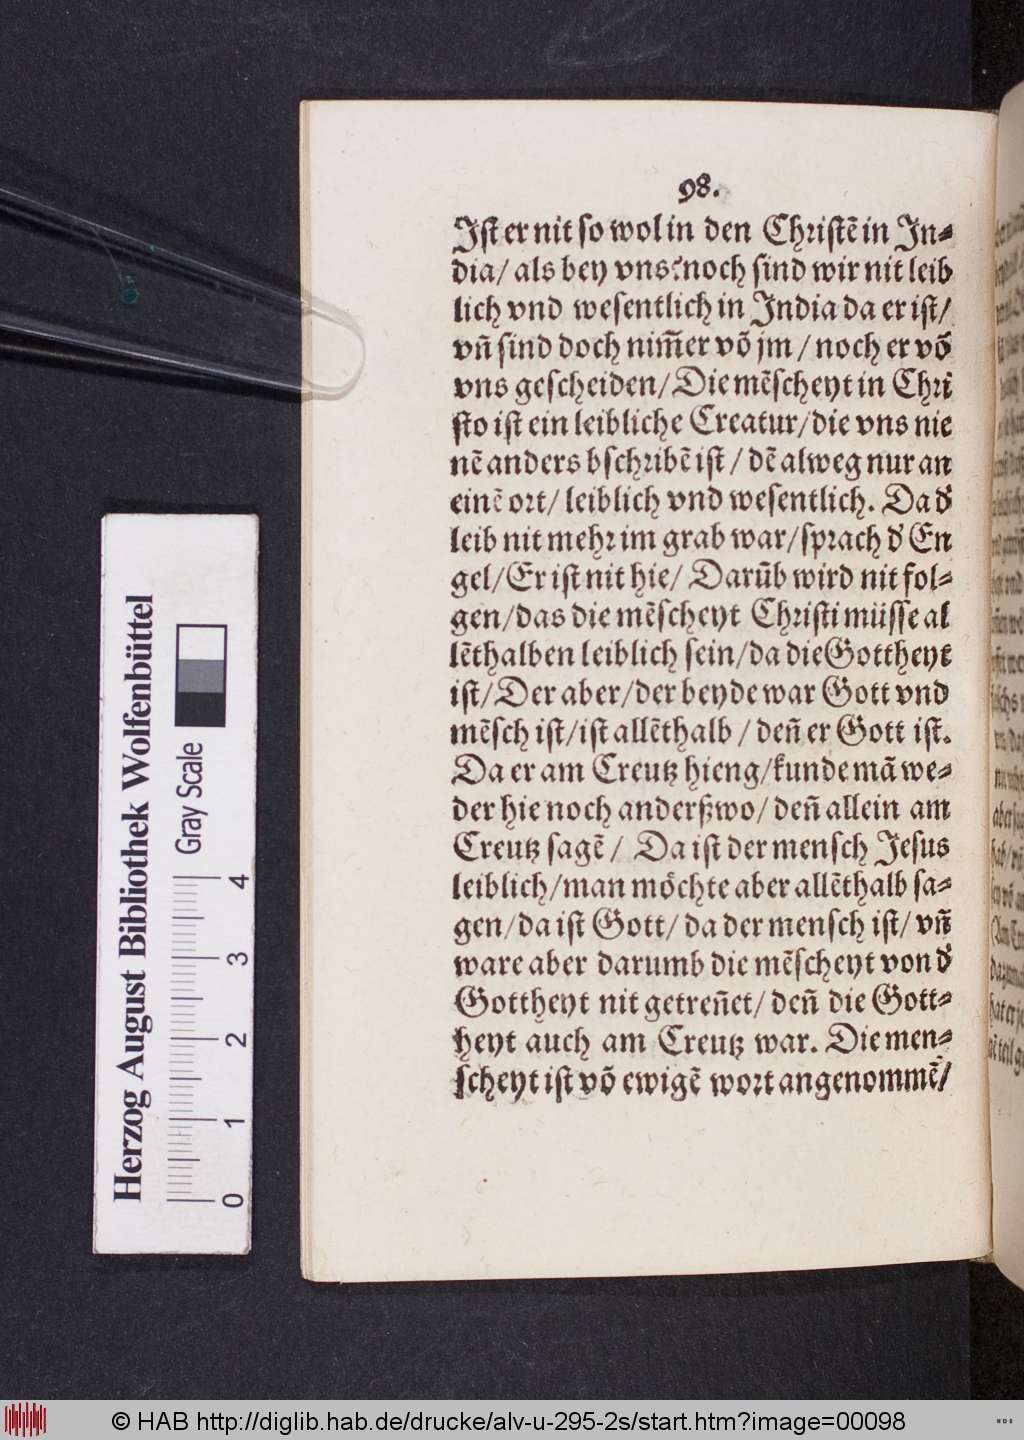 98.
Jſt er nit ſo wol in den Chriſtē in Jn⸗
dia/ als bey vns? noch ſind wir nit leib
lich vnd weſentlich in India da er iſt/
vñ ſind doch nim̃er võ jm / noch er võ
vns geſcheiden/ Die mēſcheyt in Chri
ſto iſt ein leibliche Creatur/die vns nie
nē anders bſchribē iſt / dē alweg nur an
einē ort/ leiblich vnd weſentlich. Da d'
leib nit mehr im grab war/ſprach d' En
gel/Er iſt nit hie/ Darūb wird nit fol⸗
gen/das die mēſcheyt Chriſti müſſe al
lēthalben leiblich ſein/da die Gottheyt
iſt/Der aber/der beyde war Gott vnd
mēſch iſt/iſt allēthalb / deñ er Gott iſt.
Da er am Creutz hieng/kunde mā we⸗
der hie noch anderßwo/ deñ allein am
Creutz ſagē / Da iſt der menſch Jeſus
leiblich/man möchte aber allēthalb ſa⸗
gen/da iſt Gott/ da der menſch iſt/ vñ
ware aber darumb die mēſcheyt von d'
Gottheyt nit getreñet/ deñ die Gott⸗
heyt auch am Creutz war. Die men⸗
ſcheyt iſt võ ewigē wort angenommē/
Herzog August Bibliothek Wolfenbüttel
Gray Scale
0 1 2 3 4
© HAB http://diglib.hab.de/drucke/alv-u-295-2s/start.htm?image=00098